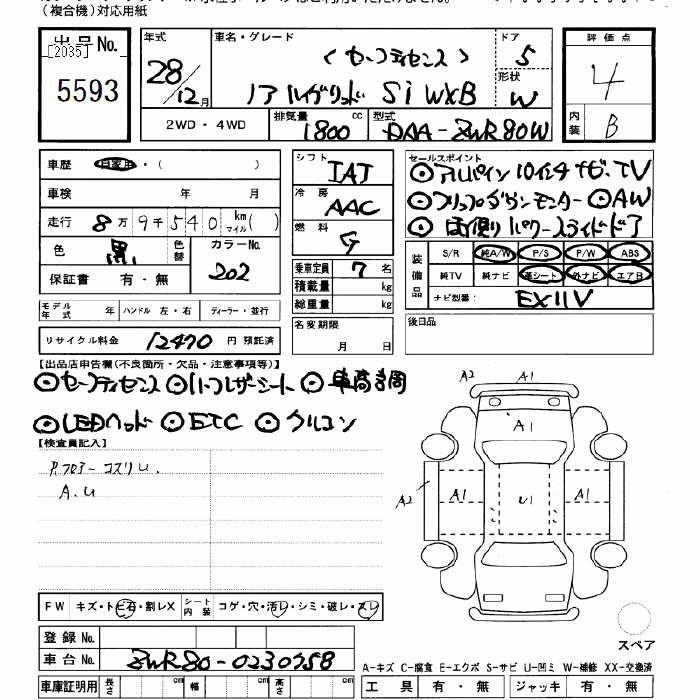 (複合機)対応用紙
出品No. [2035] 5593
年式 28/12月
車名・グレード (セーフティセンス) ノア ハイブリッド Si WXB
ドア 5
形状 W
評価点 4
内装 B
2WD・4WD 排気量 1800 cc 型式 DAA-ZWR80W
車歴 自家用・( )
車検 年 月
走行 8万9千540 km マイル( )
色 黒 色替 カラーNo. 202
保証書 有・無
シフト IAT
冷房 AAC
燃料 G
乗車定員 7 名
積載量 kg
総重量 kg
セールスポイント
◎アルパイン10インチナビ、TV
◎フリップダウンモニター ◎AW
◎両側パワースライドドア
装備品 S/R 純A/W P/S P/W ABS
純TV 純ナビ 革シート 外ナビ エアB
ナビ型番: EX11V
モデル年式 年 ハンドル 左・右 ディーラー・並行
名変期限 月 日
後日品
リサイクル料金 12470 円 預託済
【出品店申告欄(不良箇所・欠品・注意事項等)】
◎セーフティセンス ◎ハーフレザーシート ◎車高調
◎LEDヘッド ◎ETC ◎クルコン
【検査員記入】
RフロアーコスリU.
A.U
A2 A1
A1
A2 A1 U1 A1
FW キズ・トビ石・割レX シート内装 コゲ・穴・汚レ・シミ・破レ・スレ
登録No.
車台No. ZWR80-0230758
スペア
A-キズ C-腐食 E-エクボ S-サビ U-凹ミ W-補修 XX-交換済
車庫証明用 長さ cm 幅 cm 高さ cm
工具 有・無 ジャッキ 有・無